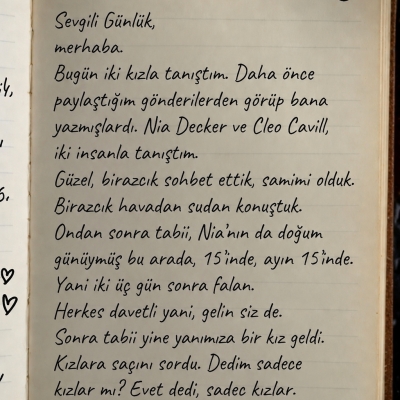 Sevgili Günlük,
merhaba.
Bugün iki kızla tanıştım. Daha önce
paylaştığım gönderilerden görüp bana
yazmışlardı. Nia Decker ve Cleo Cavill,
iki insanla tanıştım.
Güzel, birazcık sohbet ettik, samimi olduk.
Birazcık havadan sudan konuştuk.
Ondan sonra tabii, Nia'nın da doğum
günüymüş bu arada, 15'inde, ayın 15'inde.
Yani iki üç gün sonra falan.
Herkes davetli yani, gelin siz de.
Sonra tabii yine yanımıza bir kız geldi.
Kızlara saçını sordu. Dedim sadece
kızlar mı? Evet dedi, sadec kızlar.